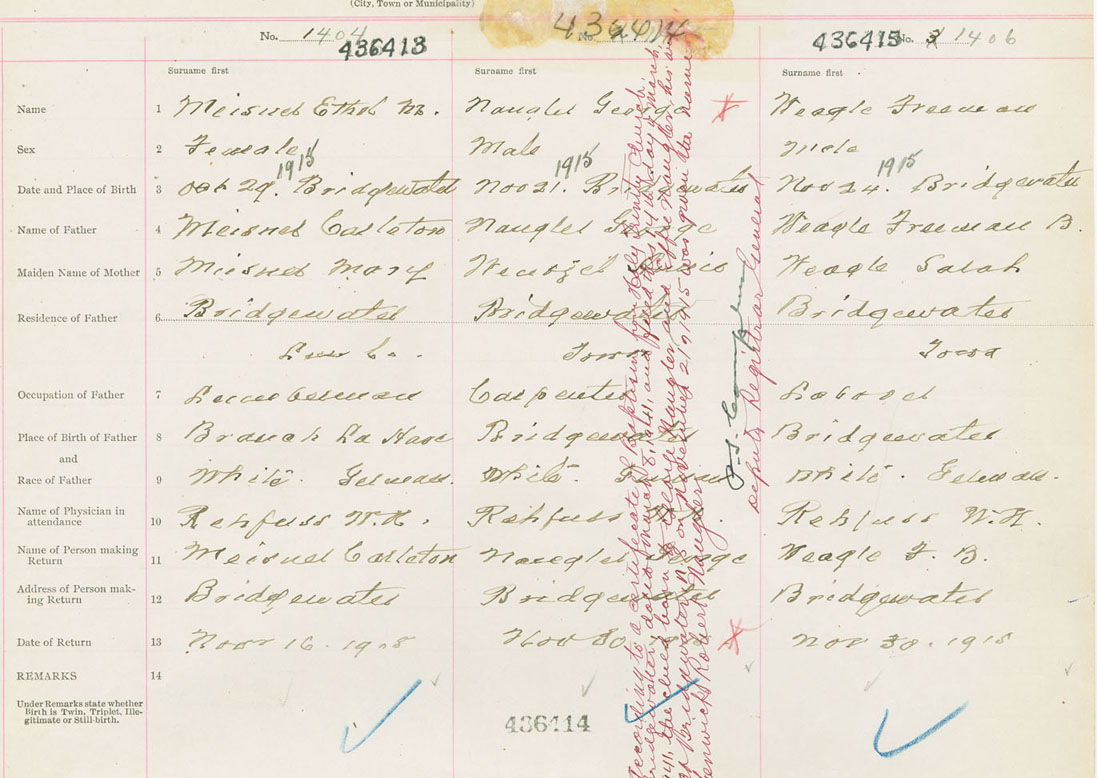 (City, Town or Municipality)
No. 1404 436413
No.
436415 No. 1406
Surname first Surname first Surname first
Name 1 Meisner Ethel M. Naugler George Weagle Freeman
Sex 2 Female Male Male
1915 1915 1915
Date and Place of Birth 3 Oct 29. Bridgewater Nov 21. Bridgewater Nov 24. Bridgewater
Name of Father 4 Meisner Carleton Naugler George Weagle Freeman B.
Maiden Name of Mother 5 Meisner Mary Wentzel Weagle Sarah
Residence of Father 6 Bridgewater Bridgewater Bridgewater
Lun Co. Town Town
Occupation of Father 7 Lumberman Carpenter Laborer
Place of Birth of Father 8 Branch La Have Bridgewater Bridgewater
and
Race of Father 9 White. German. White. German White. German.
Name of Physician in
attendance 10 Rehfuss W.H. Rehfuss Rehfuss W.H.
Name of Person making
Return 11 Meisner Carleton Naugler George Weagle F. B.
Address of Person mak-
ing Return 12 Bridgewater Bridgewater Bridgewater
Date of Return 13 Novr 16. 1915 Nov 30 Nov 30. 1915
REMARKS 14
Under Remarks state whether
Birth is Twin, Triplet, Ille-
gitimate or Still-birth.
436414
According to a certificate of Baptism from Holy Trinity Church,
Bridgewater, dated March 8, 1941, and filed this day of March,
1941, the child born to George Naugler and Effie Naugler his
at Bridgewater, N.S. on November 21, 1915 was given the name
Fenwick Robert Naugler.
Deputy Registrar General